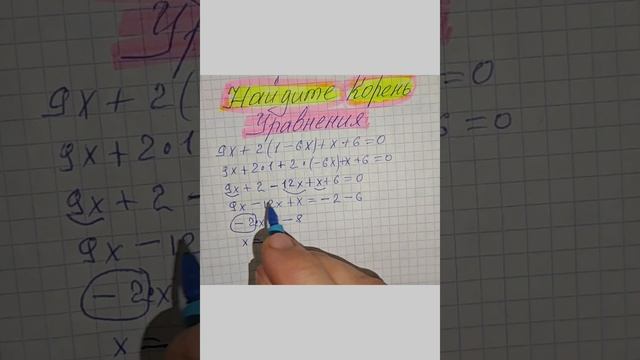 Найдите корень
Уравнения
9x + 2(1 - 6x) + x + 6 = 0
9x + 2·1 + 2·(-6x) + x + 6 = 0
9x + 2 - 12x + x + 6 = 0
9x - 12x + x = -2 - 6
-2·x = -8
x =